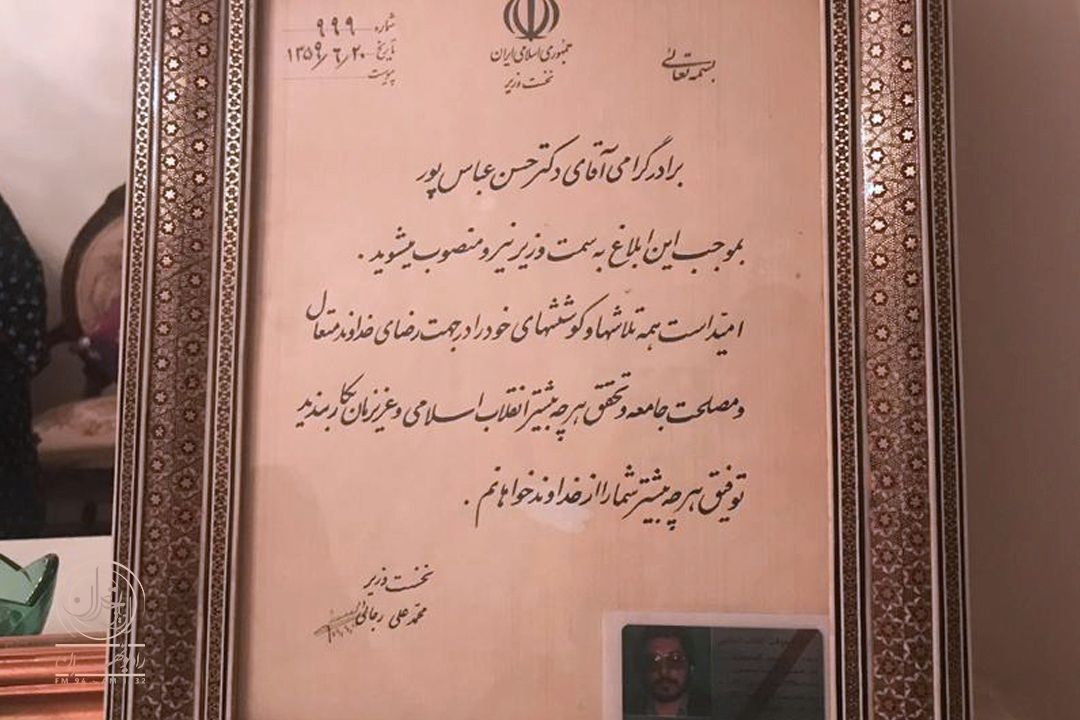 بسمه تعالی
جمهوری اسلامی ایران
نخست وزیر
شماره ۹۹۹
تاریخ ۱۳۵۹/۶/۲۰
پیوست
برادر گرامی آقای دکتر حسن عباس پور
بموجب این ابلاغ به سمت وزیر نیرو منصوب میشوید .
امید است همه تلاشها و کوششهای خود را در جهت رضای خداوند متعال
و مصلحت جامعه و تحقق هر چه بیشتر انقلاب اسلامی و عزیزمان بکار بندید
توفیق هر چه بیشتر شما را از خداوند خواهانم .
نخست وزیر
محمد علی رجائی
تهران
رادیو تهران
FM 94 - AM 1332